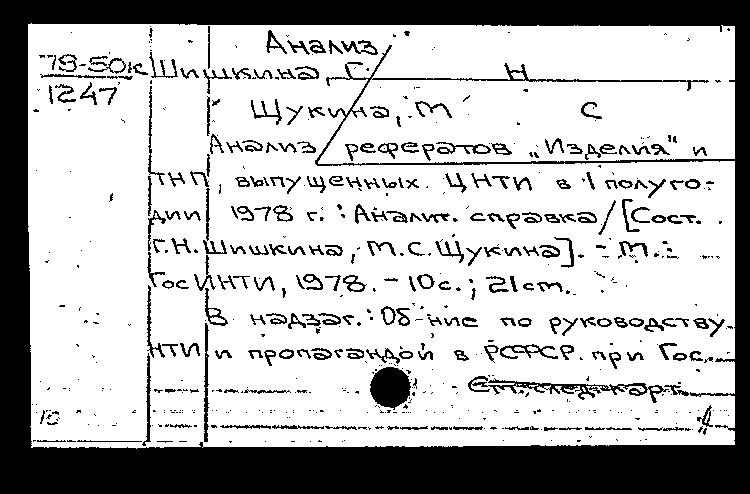 Анализ
78-50к Шишкина, Г. Н
1247
Щукина, М С
Анализ рефератов „Изделия" и
ТНП, выпущенных ЦНТИ в 1 полуго-
дии 1978 г. : Аналит. справка / [Сост.
Г.Н. Шишкина, М.С. Щукина]. - М. :
ГосИНТИ, 1978. - 10 с. ; 21 cm.
В надзаг. : Об-ние по руководству
НТИ и пропагандой в РСФСР при Гос.
См. след. карт.